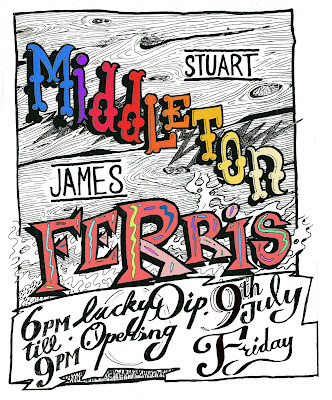 STUART
MiDDLETON
JAMES
FERRiS.
6PM lucky Dip. 9th July
till Opening Friday
9PM